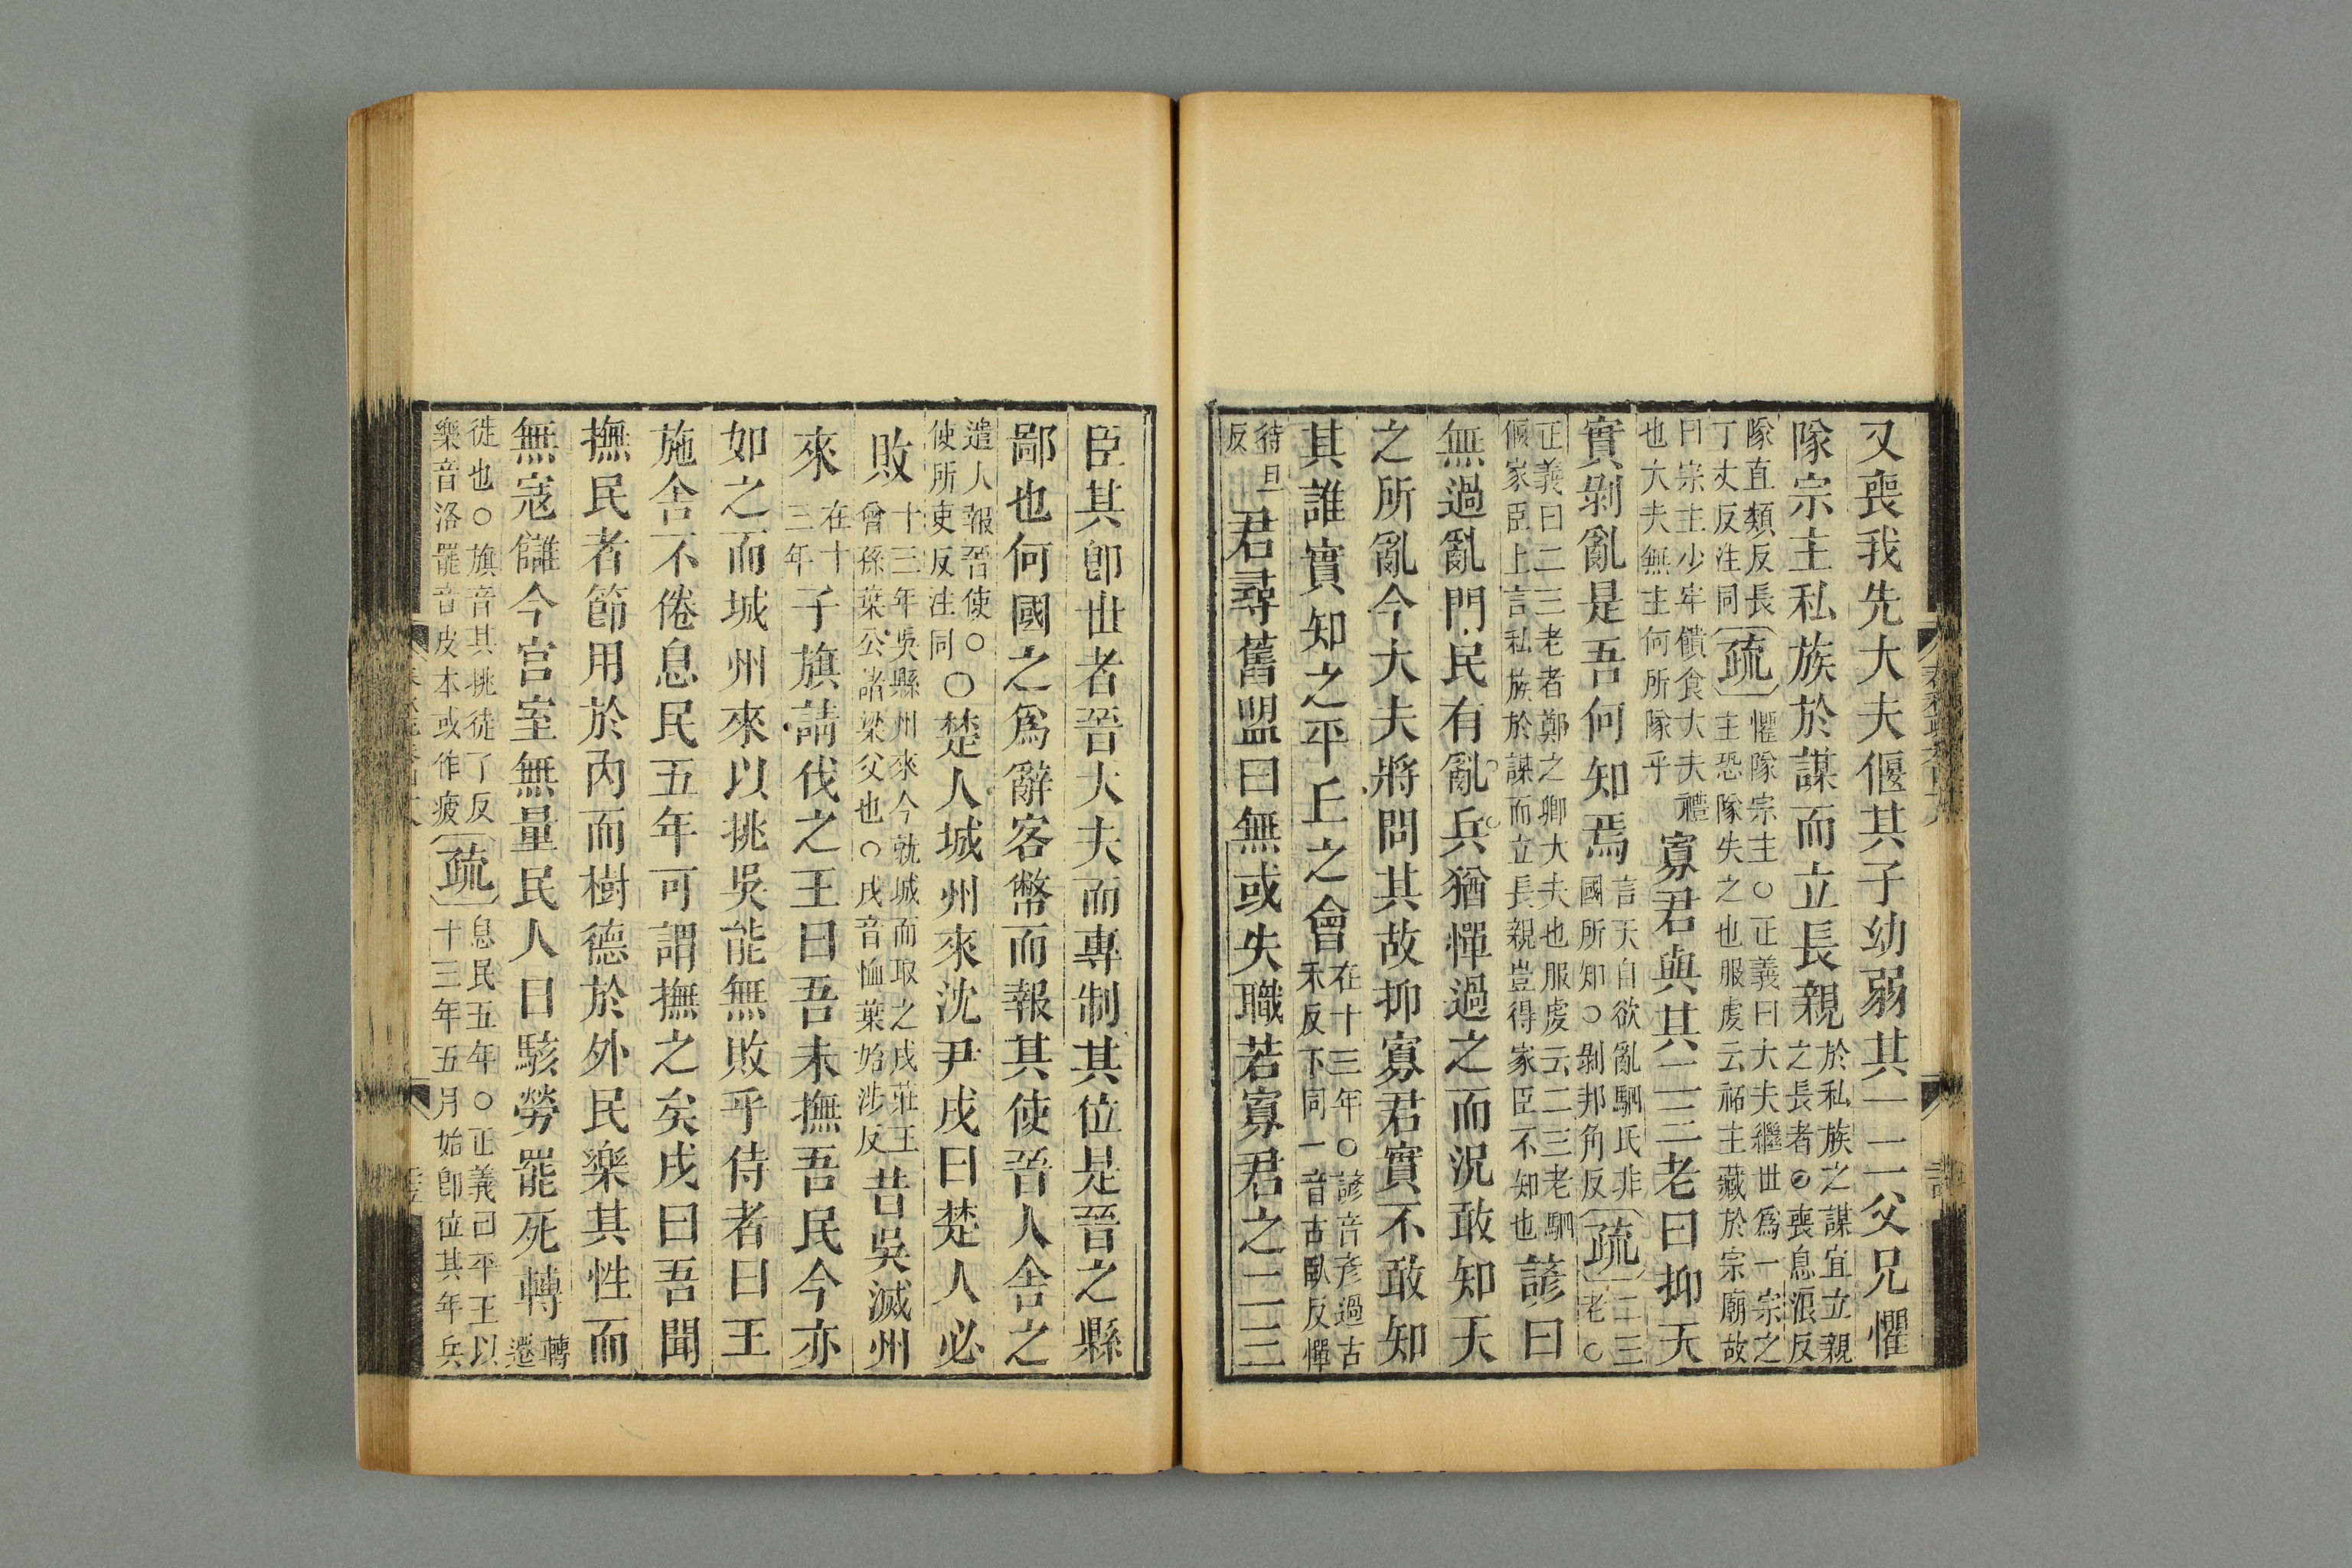 又喪我先大夫偃其子幼弱其一二父兄懼
隊宗主私族於謀而立長親於私族之謀宜立親之長者○喪息浪反
隊直類反長丁丈反注同疏懼隊宗主○正義曰大夫繼世爲一宗之主恐隊失之也服虔云祏主藏於宗廟故
曰宗主少牢饋食大夫禮也大夫無主何所隊乎寡君與其二三老曰抑天
實剝亂是吾何知焉言天自欲亂駟氏非國所知○剝邦角反疏二三老○
正義曰二三老者鄭之卿大夫也服虔云二三老駟偃家臣上言私族於謀而立長親豈得家臣不知也諺曰
無過亂門民有亂兵猶憚過之而況敢知天
之所亂今大夫將問其故抑寡君實不敢知
其誰實知之平丘之會在十三年○諺音彥過古禾反下同一音古臥反憚
待旦反君尋舊盟曰無或失職若寡君之二三
臣其卽世者晉大夫而專制其位是晉之縣
鄙也何國之爲辭客幣而報其使晉人舍之
遣人報晉使○使所吏反注同○楚人城州來沈尹戌曰楚人必
敗十三年吳縣州來今就城而取之戌莊王曾孫葉公諸梁父也○戌音恤葉始涉反昔吳滅州
來在十三年子旗請伐之王曰吾未撫吾民今亦
如之而城州來以挑吳能無敗乎侍者曰王
施舍不倦息民五年可謂撫之矣戌曰吾聞
撫民者節用於內而樹德於外民樂其性而
無寇讎今宮室無量民人日駭勞罷死轉轉遷
徙也○旗音其挑徒了反樂音洛罷音皮本或作疲疏息民五年○正義曰平王以十三年五月始卽位其年兵